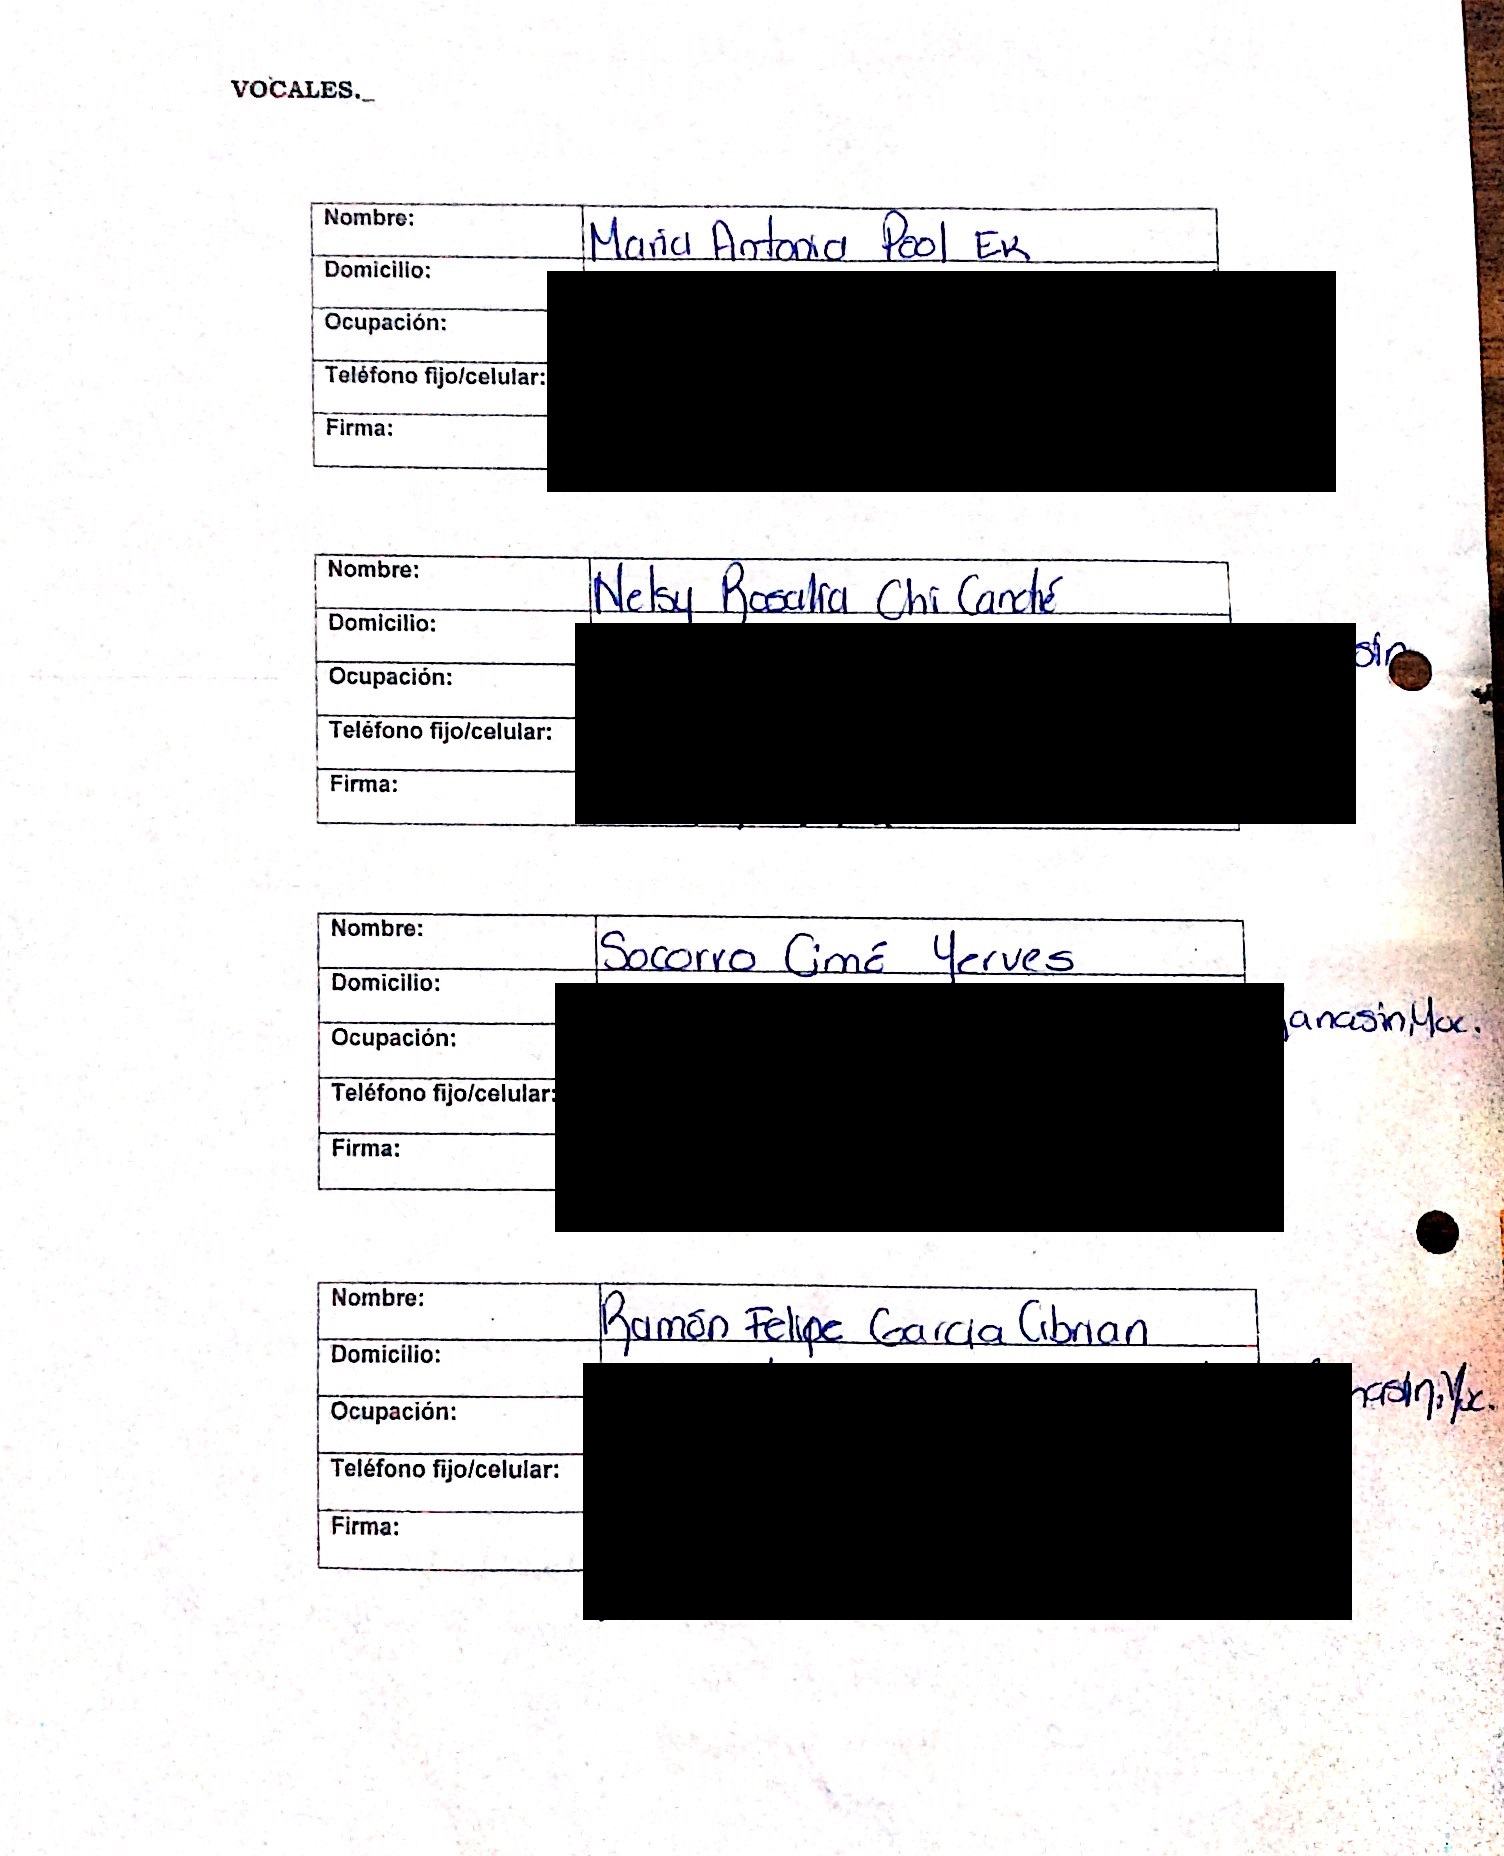 VOCALES._
Nombre: Maria Antonia Pool Ek
Domicilio:
Ocupación:
Teléfono fijo/celular:
Firma:
Nombre: Nelsy Rosalia Chi Canché
Domicilio:
Ocupación:
Teléfono fijo/celular:
Firma:
Nombre: Socorro Cimé Yerves
Domicilio: anasin, Yuc.
Ocupación:
Teléfono fijo/celular:
Firma:
Nombre: Ramón Felipe Garcia Cibrian
Domicilio: nasin, Yuc.
Ocupación:
Teléfono fijo/celular:
Firma: